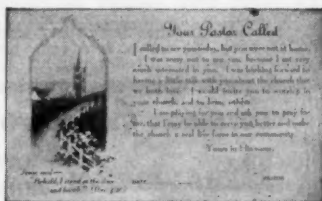 Your Pastor Called
I called to see you today, but you were not at home.
I was sorry not to see you, because I am very
much interested in you. I was looking forward to
having a little talk with you about the church that
we both love. I would invite you to worship in
your church, and to bring others.
I am praying for you and ask you to pray for
me, that I may be able to serve you better and make
the church a real life force in our community.
Yours in
Jesus said—
"Behold, I stand at the door
and knock." Rev. 3:20